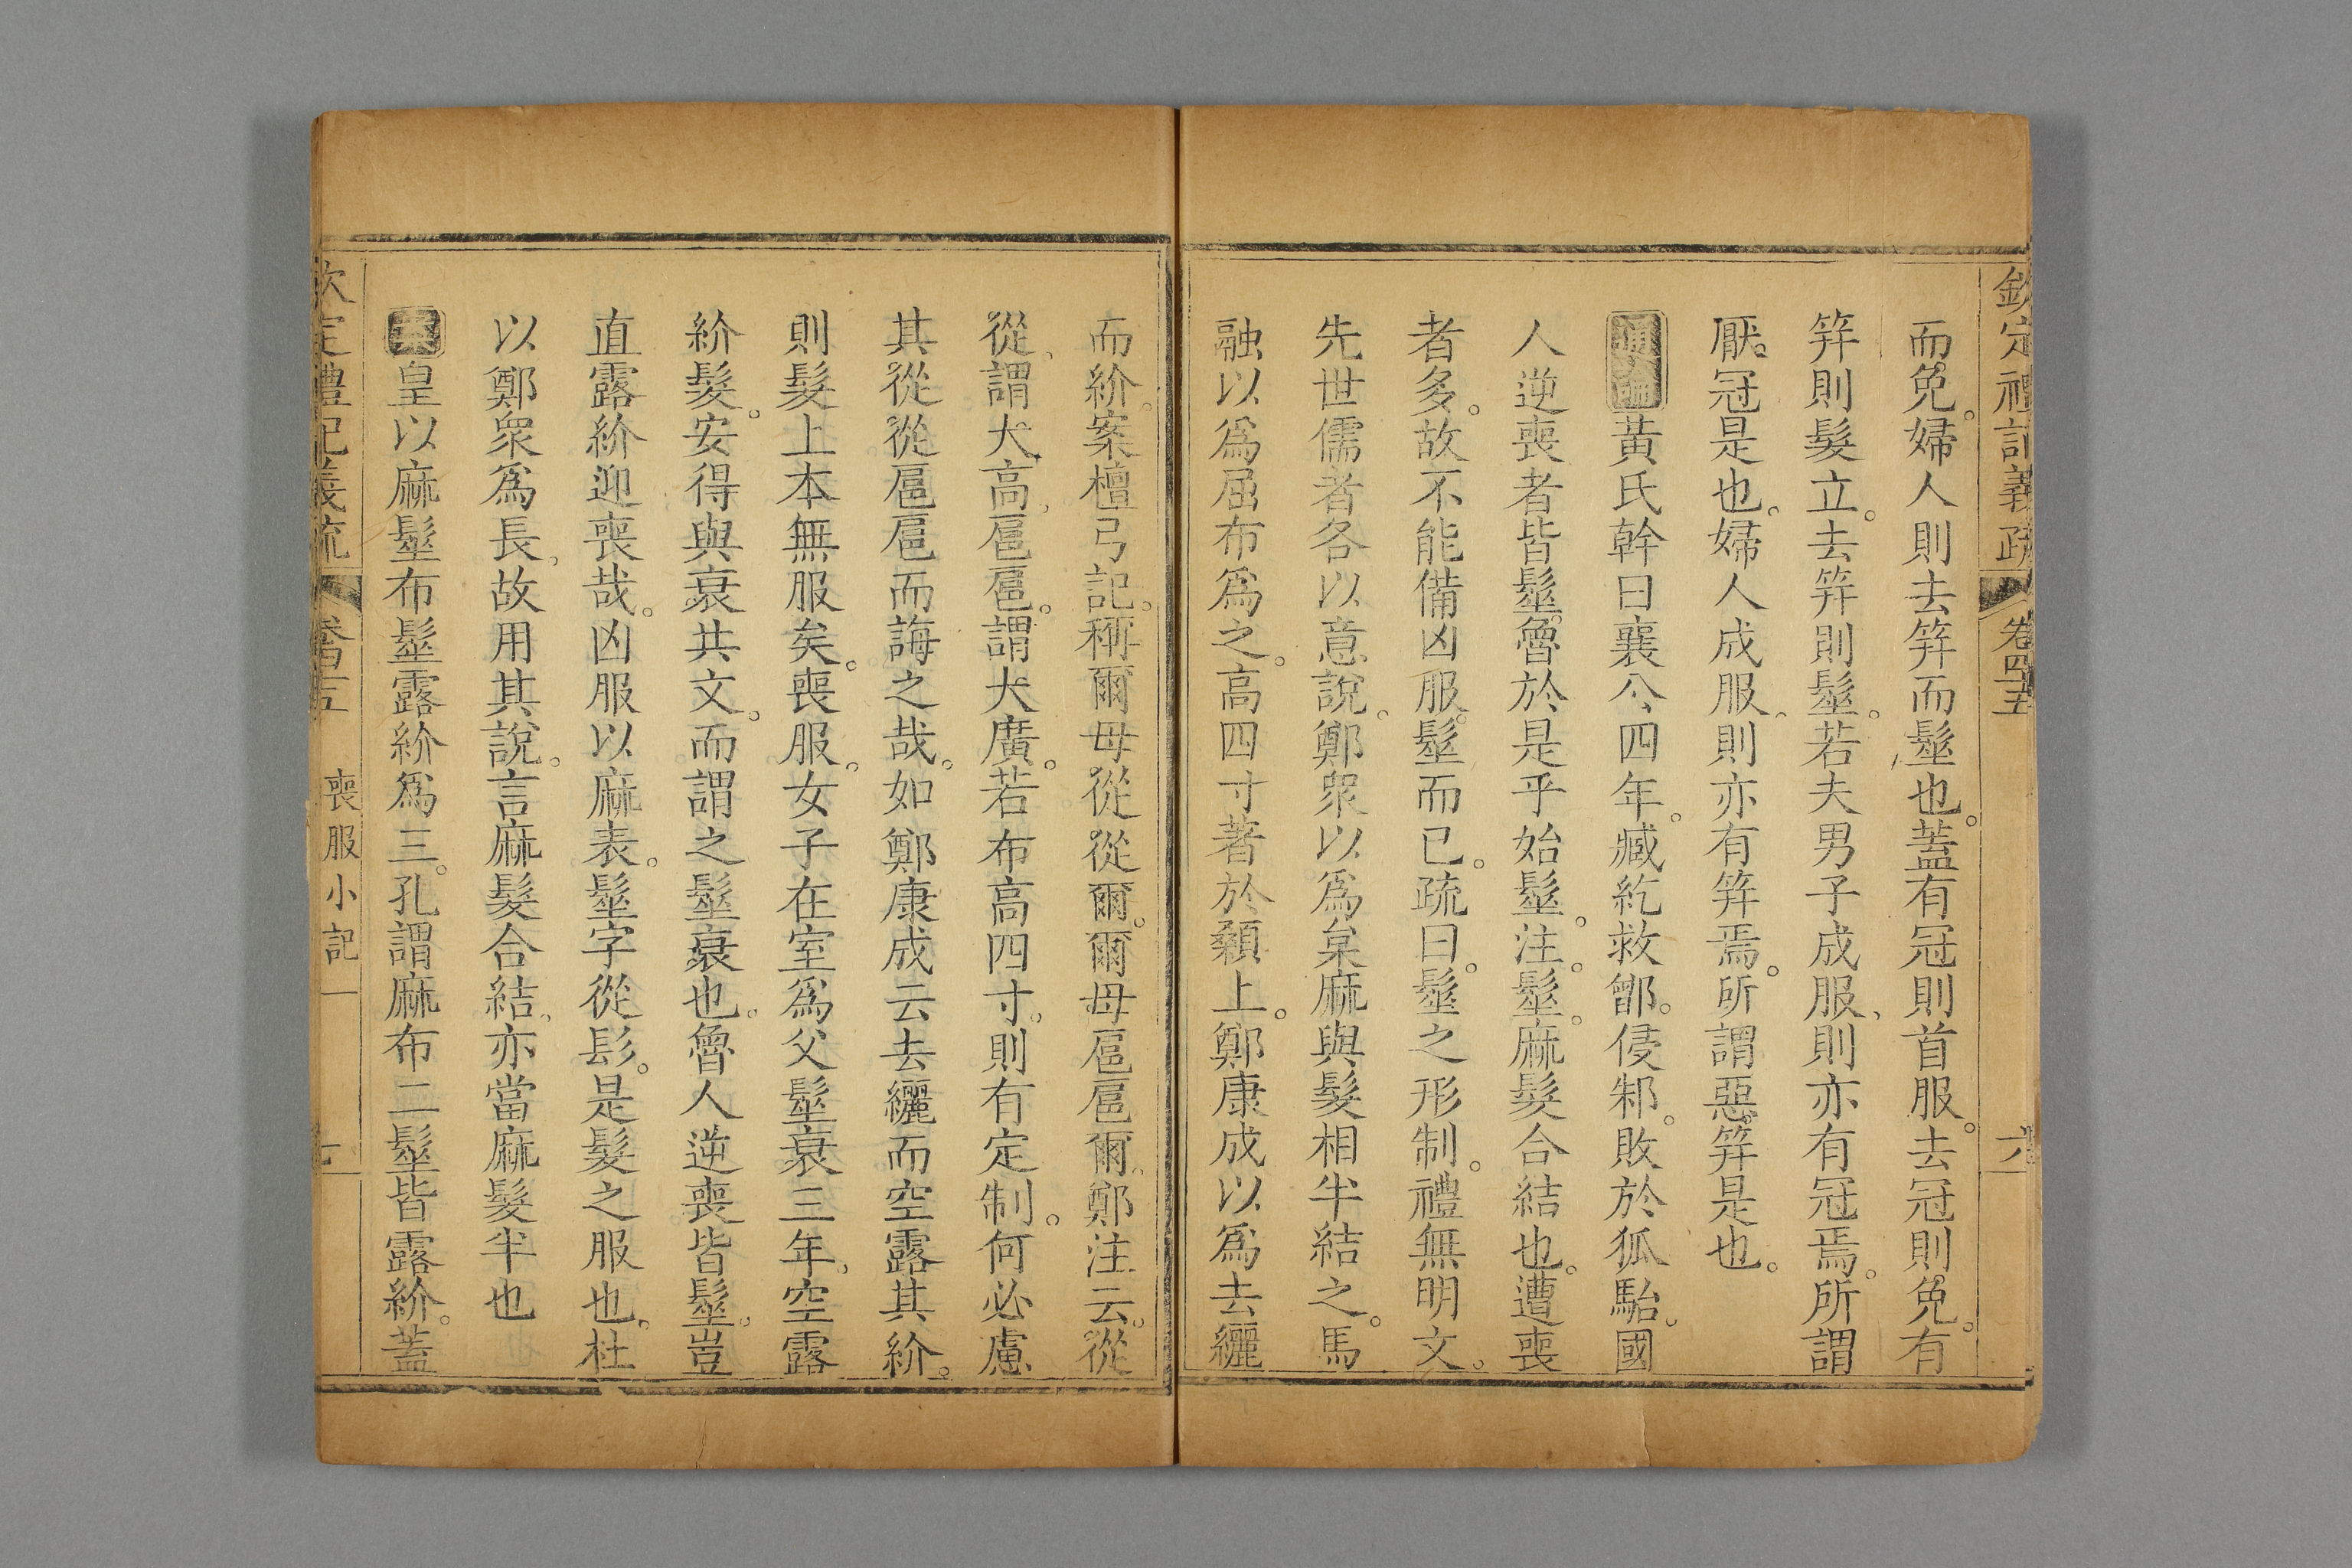 欽定禮記義疏 卷四十五 六
而免。婦人則去笄而髽也。蓋有冠則首服。去冠則免。有
笄則髮立。去笄則髽。若夫男子成服、則亦有冠焉。所謂
厭冠是也。婦人成服、則亦有笄焉。所謂惡笄是也。
通論 黃氏幹曰襄公四年。臧紇救鄫。侵邾。敗於狐駘。國
人逆喪者皆髽。魯於是乎始髽。注。髽。麻髮合結也。遭喪
者多。故不能備凶服。髽而已。疏曰。髽之形制。禮無明文。
先世儒者各以意說。鄭眾以爲枲麻與髮相半結之。馬
融以爲屈布爲之。高四寸著於顙上。鄭康成以爲去纚
而紒。案檀弓記。稱爾母從從爾。爾母扈扈爾、鄭注云。從
從、謂大高、扈扈。謂大廣。若布高四寸。則有定制。何必慮
其從從扈扈而誨之哉。如鄭康成云去纚而空露其紒。
則髮上本無服矣。喪服。女子在室爲父髽衰三年、空露
紒髮。安得與衰共文。而謂之髽衰也。魯人逆喪皆髽、豈
直露紒迎喪哉。凶服以麻表。髽字從髟。是髮之服也。杜
以鄭眾爲長、故用其說。言麻髮合結、亦當麻髮半也
案 皇以麻髽布髽露紒爲三。孔謂麻布二髽皆露紒。蓋
欽定禮記義疏 卷四十五 喪服小記一 七